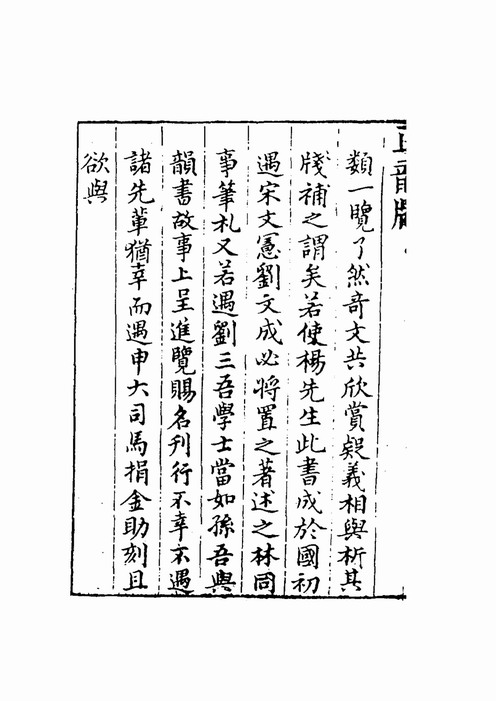 正韻牋
類一覽了然竒文共欣賞疑義相與析其
牋補之謂矣若使楊先生此書成於國初
遇宋文憲劉文成必將置之著述之林同
事筆札又若遇劉三吾學士當如孫吾與
韻書故事上呈進覽賜名刊行不幸不遇
諸先軰猶幸而遇申大司馬捐金助刻且
欲與